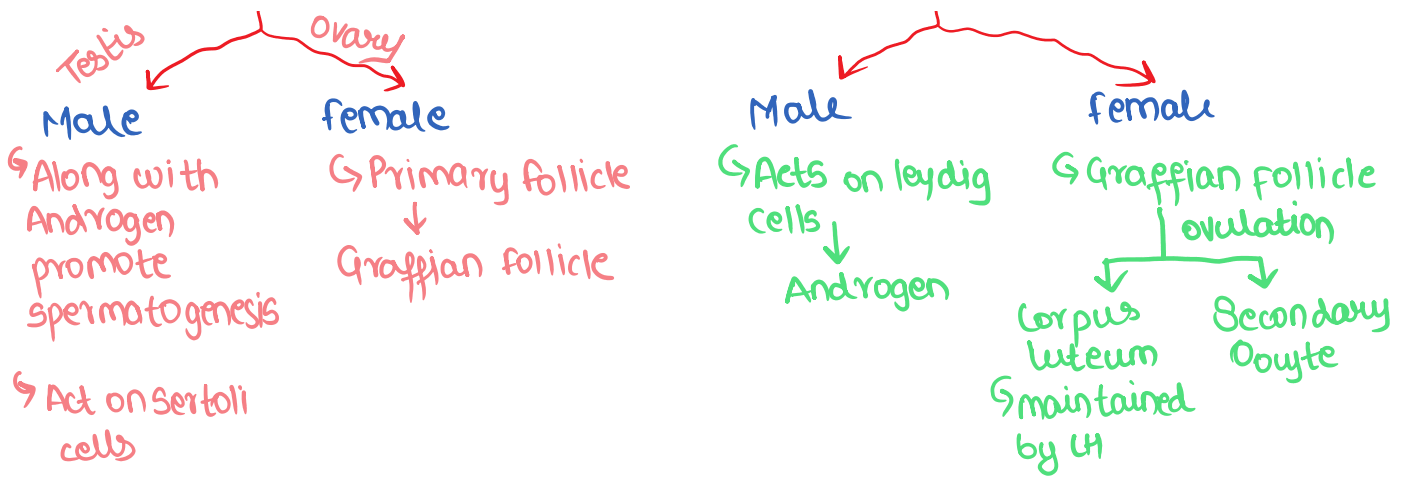 Testis
Ovary
Male
female
Along with
Androgen
promote
spermatogenesis
Act on Sertoli
cells
Primary follicle
Graffian follicle
Male
female
Acts on leydig
cells
Androgen
Graffian follicle
ovulation
Corpus
luteum
maintained
by LH
Secondary
Oouyte